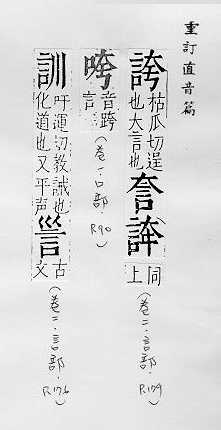 重訂直音篇
誇
枯瓜切逞
也大言也
同
上
(卷二·言部·R179)
咵
音跨
言
(卷一·口部·R90)
訓
吁運切教誡也
化道也又平声
古
文
(卷二·言部·R176)